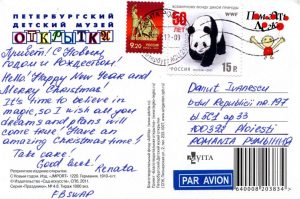 ПЕТЕРБУРГСКИЙ
ДЕТСКИЙ МУЗЕЙ
ОТКРЫТКИ
Привет! С Новым
годом и Рождеством!
Hello! Happy New Year and
Merry Christmas!
It's time to believe in
magic, so I wish all your
dreams and plans will
come true! Have an
amazing Christmas time!
Take care!
Good luck!
Renata
FBSWAP
РОССИЯ
9.20
50 ЛЕТ
WWF
РОССИЯ
15 р.
Danut Ivanescu
bdul Republicii nr 197
bl 5C1 ap 33
Ploiesti
ROMANIA
PAR AVION
640008203834